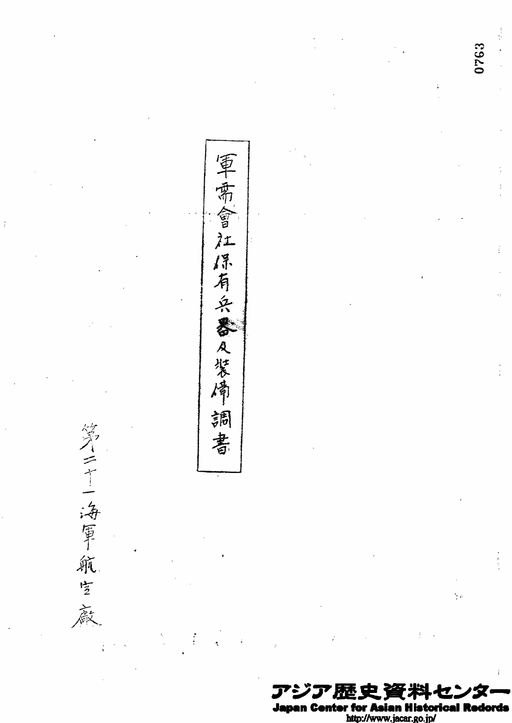 0763
軍需會社保有兵器及装備調書
第二十一海軍航空廠
アジア歴史資料センター
Japan Center for Asian Historical Redords
http://www.jacar.go.jp/